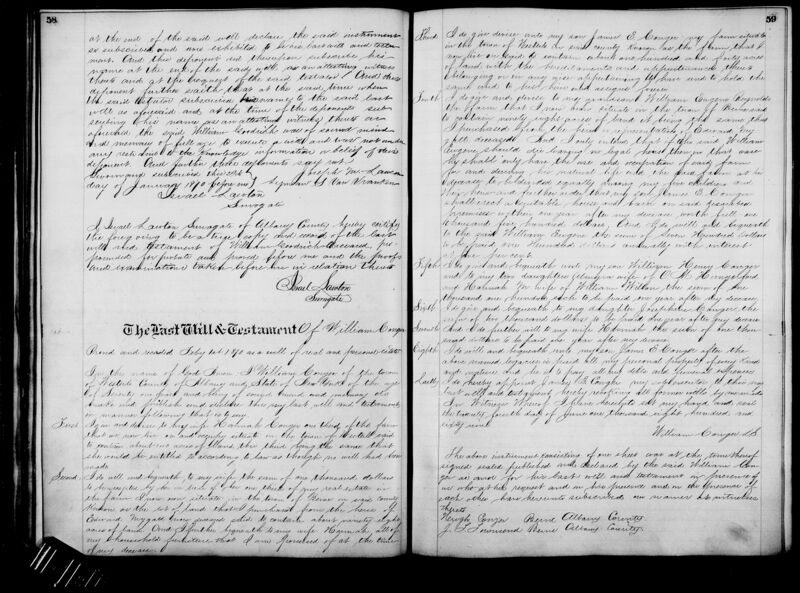 58
at the end of the said will declare the said instrument
so subscribed and now exhibited to be his last will and testa-
ment. And this deponent did thereupon subscribe his
name at the end of the said will as an attesting witness
thereto and at the request of the said testator. And this
deponent further saith that at the said time when
the said testator subscribed his name to the said last
will as aforesaid and at the time of the deponents sub-
scribing his name as an attesting witness thereto as
aforesaid the said William Goodrich was of sound mind
and memory of full age to execute a will and was not under
any restraint to the knowledge information or belief of this
deponent. And further these deponents say not
Severally subscribed this 31st
day of January 1870 before me
Israel Lawton
Surrogate
I Israel Lawton Surrogate of Albany County hereby certify
the foregoing to be a true copy and record of the last
will and testament of William Goodrich deceased, pro-
pounded for probate and proved before me and the proofs
and examinations taken before me in relation thereto
Israel Lawton
Surrogate
The Last Will & Testament Of William Conger
Proved and recorded Feby 1st 1870 as a will of real and personal estate
In the name of God Amen I William Conger of the town
of Westerlo County of Albany and State of New York of the age
of and being of sound mind and memory do
make publish and declare this my last will and testament
in manner following that is to say
First I give and devise to my wife Hannah Conger one third of the farm
that we now live on and occupy situate in the town of Westerlo said
to contain about acres of land the third being the same that
she would be entitled to according to law as though no will had been
made
Second I do will and bequeath to my wife the sum of one thousand dollars
to be accepted by her in lieu of her one third of my real estate in
the farm I now own situate in the town of Berne in said county
known as the lot of land that I purchased from the heirs of
Edward deceased said to contain about ninety eight
acres of land. And I further bequeath to my wife Hannah all of
my household furniture that I am possessed of at the time
of my decease
59
Third I do give devise unto my son James E Conger my farm situated
in the town of Westerlo in said county known as the farm that I
now live on said to contain about one hundred and forty acres
of land with the hereditaments and appurtenances thereto
belonging or in any wise appertaining to have and to hold the
same and to his heirs and assigns forever
Fourth I do give and devise to my grandson William Eugene Reynolds
the farm that I now own situate in the town of Berne said
to contain ninety eight acres of land it being the same that
I purchased from the heirs or representatives of Edward
deceased. And I only intend that if the said William
Eugene should die leaving no legal heirs then in that case
he shall only have the use and occupation of said farm
for and during his natural life and the said farm at his
decease to be divided equally among my five children and
their heirs and that my son James E Conger
shall erect a suitable house and barn on said described
premises within one year after my decease worth full one
thousand five hundred dollars. And I do will and bequeath
to the said William Eugene the sum of Seven Hundred dollars
to be paid one Hundred dollars annually with interest
at five per cent
Fifth I do give and bequeath unto my son William Henry Conger
and to my two daughters Almira wife of
and Hannah M wife of William the sum of one
thousand one hundred each to be paid one year after my decease
Sixth I do give and bequeath to my daughter Josephine Conger the
sum of two thousand dollars to be paid one year after my decease
Seventh And I do further will to my wife Hannah the sum of one thou-
sand dollars to be paid one year after my decease
Eighth I do will and bequeath unto my son James E Conger after the
above named legacies is paid all my personal property of every kind
and nature and he is to pay all my debts and funeral expenses
Lastly I do hereby appoint James E Conger my sole executor to this my
last will and testament hereby revoking all former wills by me made
In Witness Whereof I have hereunto set my hand and seal
the twenty fourth day of June one thousand eight hundred and
sixty seven
William Conger L.S.
The above instrument consisting of one sheet was at the time thereof
signed sealed published and declared by the said William Con-
ger as and for his last will and testament in presence of
us who at his request and in his presence and in the presence of
each other have hereunto subscribed our names as witnesses
thereto
Conger Berne Albany County
J. S. Townsend Berne Albany County